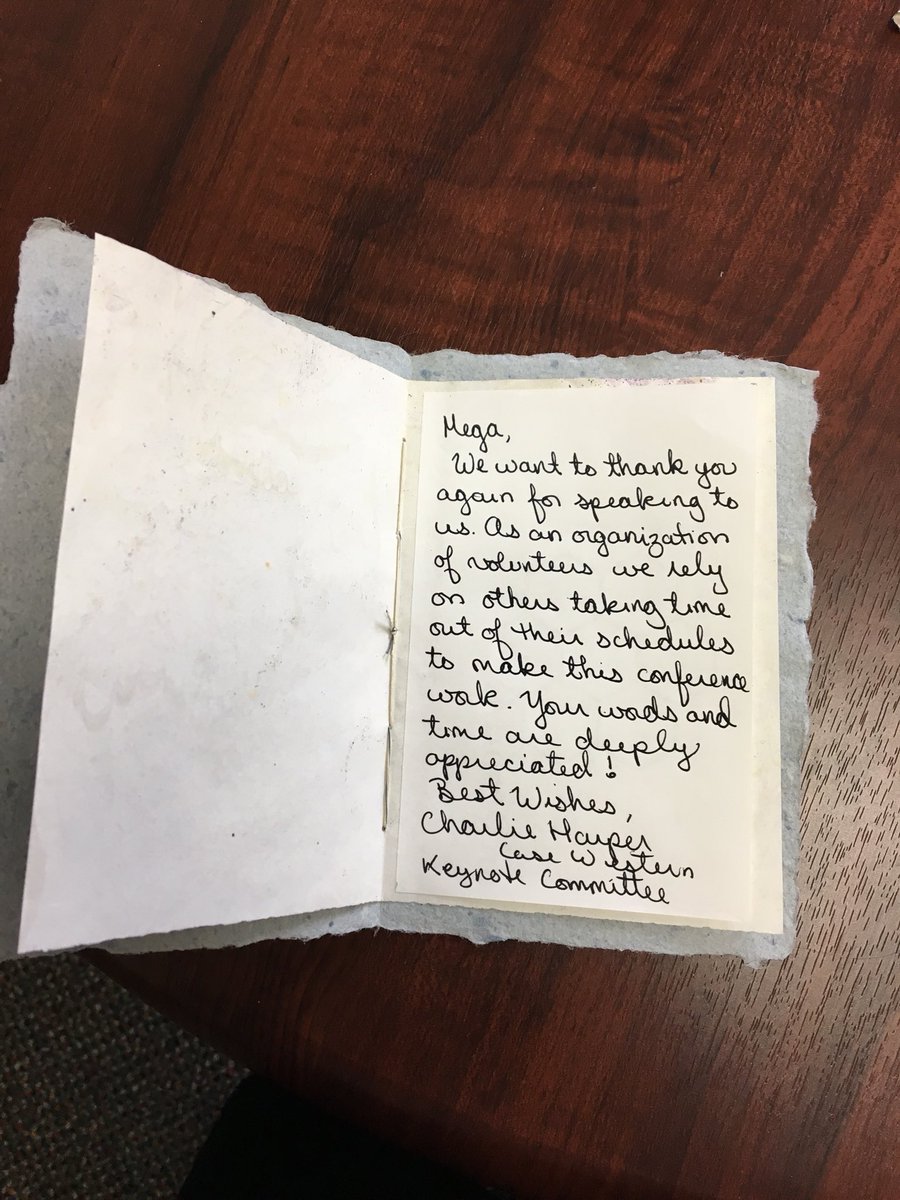 Mega,
We want to thank you
again for speaking to
us. As an organization
of volunteers we rely
on others taking time
out of their schedules
to make this conference
work. Your words and
time are deeply
appreciated!
Best Wishes,
Charlie Harper
Case Western
Keynote Committee